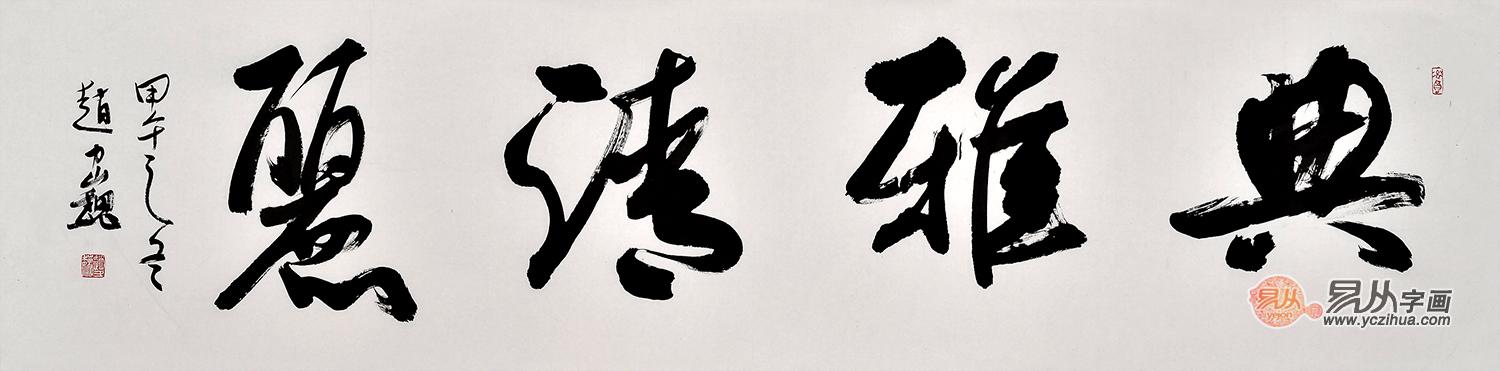 典雅清麗
甲午之冬
趙
易从
易从字画
www.yczihua.com